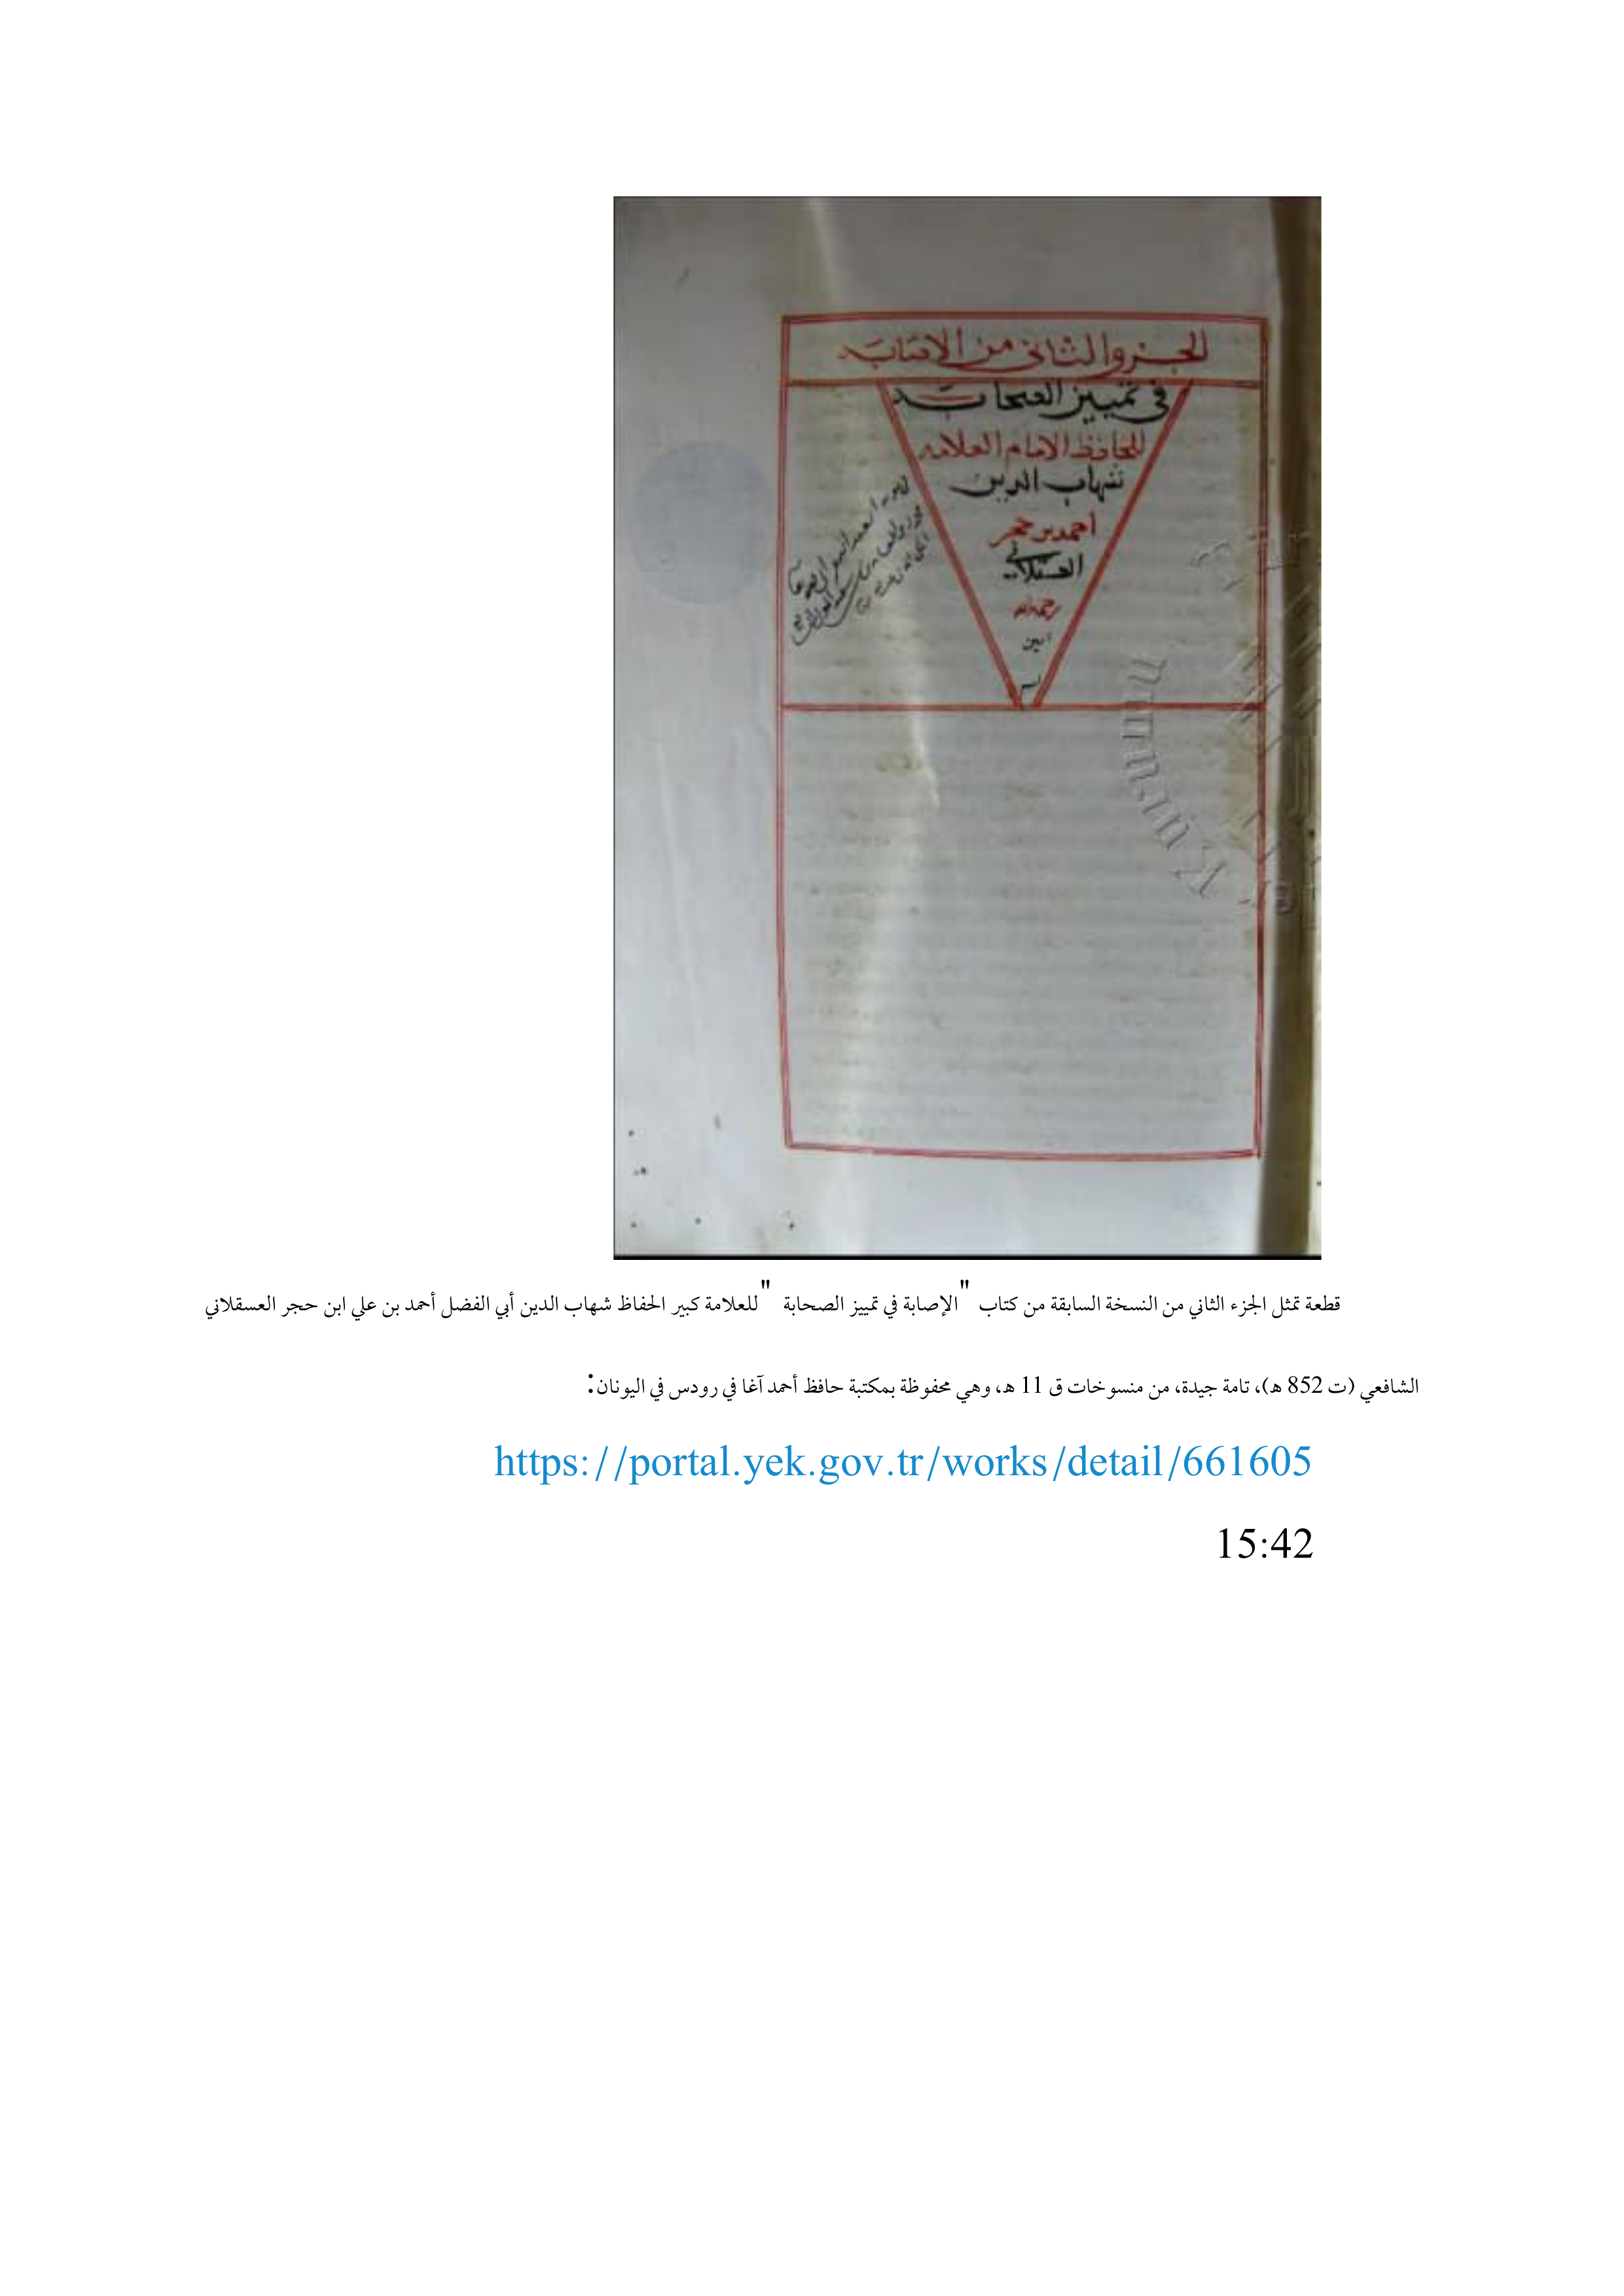 الجزو الثانى من الاصابة
فى تمييز الصحابة
للحافظ الامام العلامه
شهاب الدين
احمد بن حجر
العسقلانى
رحمه الله
امين
Kurumu
قطعة تمثل الجزء الثاني من النسخة السابقة من كتاب "الإصابة في تمييز الصحابة" للعلامة كبير الحفاظ شهاب الدين أبي الفضل أحمد بن علي ابن حجر العسقلاني
الشافعي (ت 852 هـ)، تامة جيدة، من منسوخات ق 11 هـ، وهي محفوظة بمكتبة حافظ أحمد آغا في رودس في اليونان:
https://portal.yek.gov.tr/works/detail/661605
15:42